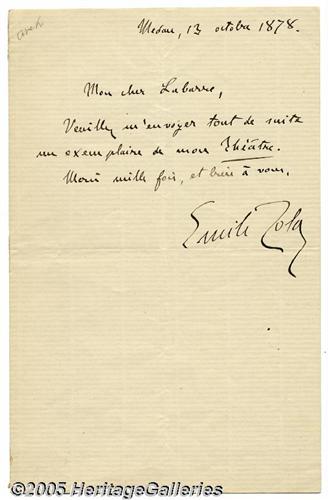 Medan, 13 octobre 1878.
Mon cher Labarre,
Veuillez m'envoyer tout de suite
un exemplaire de mon Théâtre.
Merci mille fois, et bien à vous,
Emile Zola
©2005 HeritageGalleries